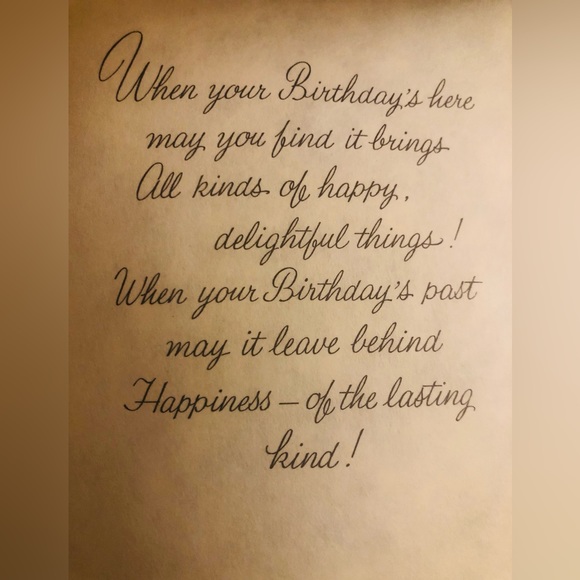 When your Birthday's here
may you find it brings
All kinds of happy,
delightful things!
When your Birthday's past
may it leave behind
Happiness – of the lasting
kind!